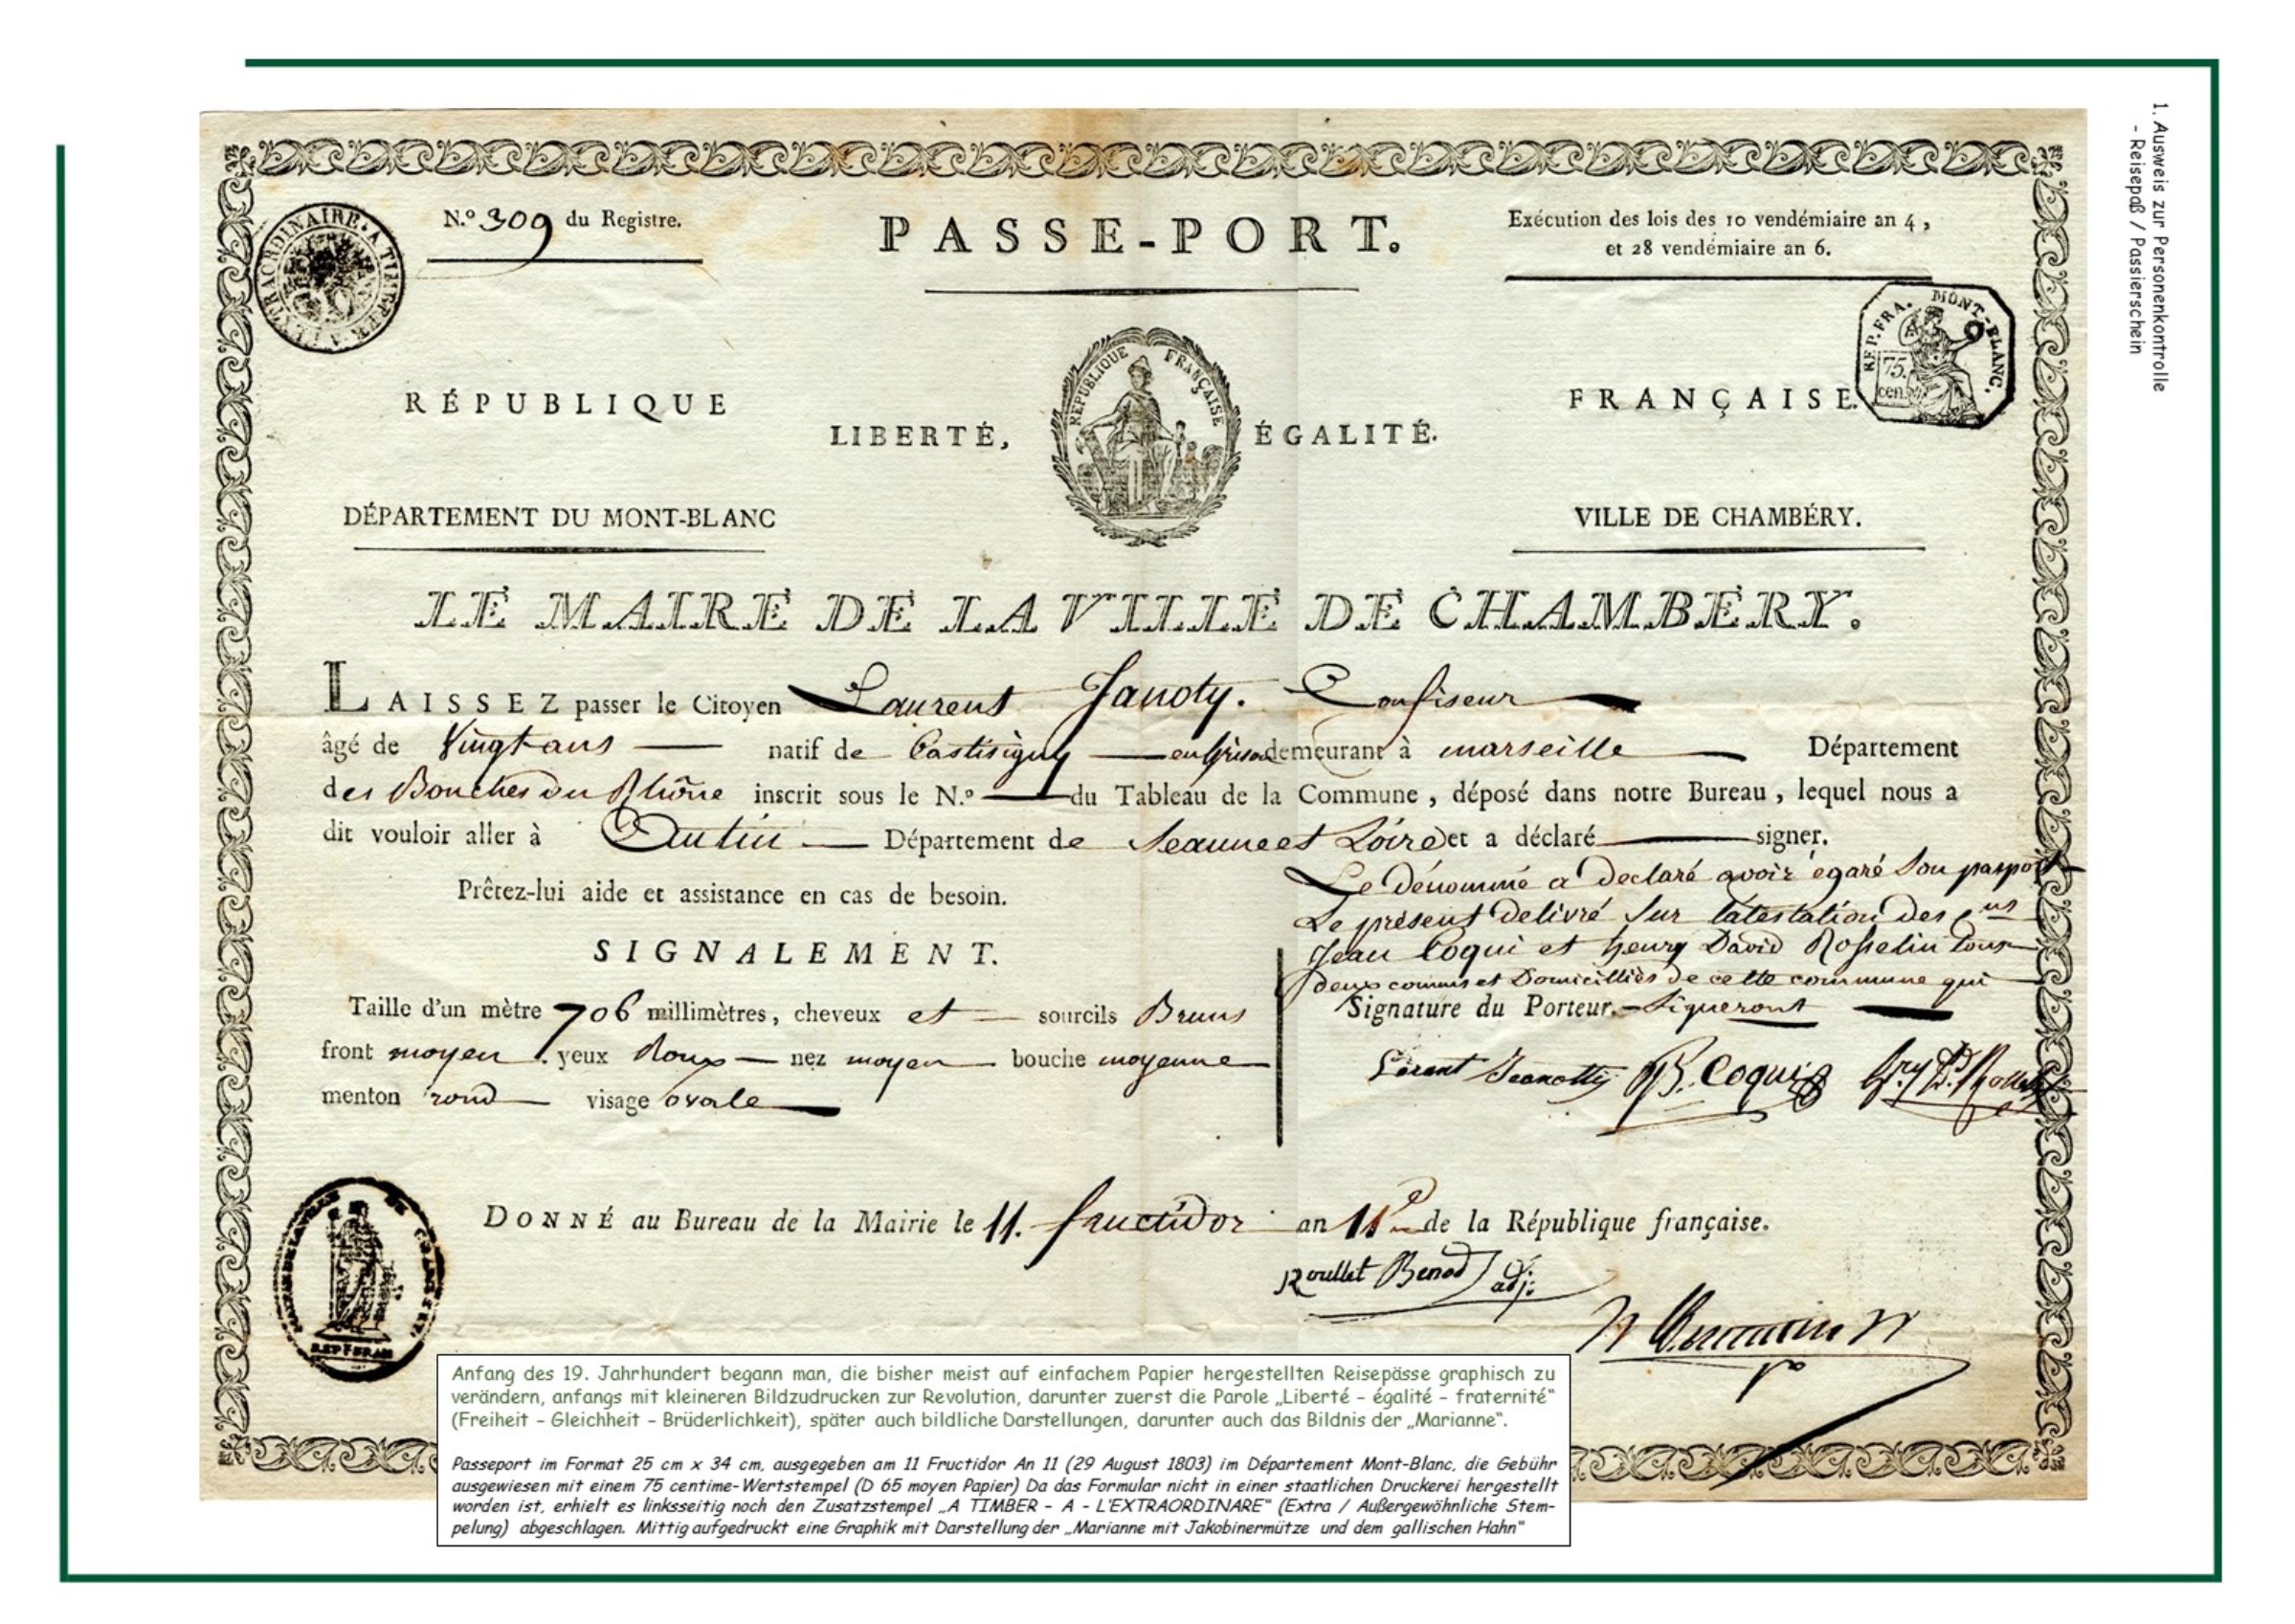 1. Ausweis zur Personenkontrolle
- Reisepaß / Passierschein
N.º 309 du Registre.
PASSE-PORT.
Exécution des lois des 10 vendémiaire an 4,
et 28 vendémiaire an 6.
EXTRAORDINAIRE. A TIMBRER A L'
REP. FRA. MONT-BLANC.
75. cen.
RÉPUBLIQUE
FRANÇAISE.
LIBERTÉ,
RÉPUBLIQUE FRANÇAISE
ÉGALITÉ.
DÉPARTEMENT DU MONT-BLANC
VILLE DE CHAMBÉRY.
LE MAIRE DE LA VILLE DE CHAMBÉRY.
LAISSEZ passer le Citoyen Laurent Janoty. Confiseur
âgé de Vingt ans natif de en demeurant à marseille Département
des Bouches du Rhône inscrit sous le N.º du Tableau de la Commune, déposé dans notre Bureau, lequel nous a
dit vouloir aller à Autun Département de Seaune et Loire et a déclaré signer.
Le dénommé a declaré avoir égaré son pasport
Prêtez-lui aide et assistance en cas de besoin.
Le présent delivré sur latestation des
SIGNALEMENT.
Jean Coqui et henry David Rosselin tous
deux connus et Domicilliés de cette commune qui
Taille d'un mètre 706 millimètres, cheveux et sourcils Bruns
Signature du Porteur. Signeront
front moyen yeux Roux nez moyen bouche moyenne
Lorent Jeanotty B. Coqui
menton rond visage ovale
DONNÉ au Bureau de la Mairie le 11. fructidor an 11 de la République française.
Roullet Benod adj.
REP. FRAN
Anfang des 19. Jahrhundert begann man, die bisher meist auf einfachem Papier hergestellten Reisepässe graphisch zu
verändern, anfangs mit kleineren Bildzudrucken zur Revolution, darunter zuerst die Parole „Liberté - égalité - fraternité“
(Freiheit - Gleichheit - Brüderlichkeit), später auch bildliche Darstellungen, darunter auch das Bildnis der „Marianne“.
Passeport im Format 25 cm x 34 cm, ausgegeben am 11 Fructidor An 11 (29 August 1803) im Département Mont-Blanc, die Gebühr
ausgewiesen mit einem 75 centime-Wertstempel (D 65 moyen Papier) Da das Formular nicht in einer staatlichen Druckerei hergestellt
worden ist, erhielt es linksseitig noch den Zusatzstempel „A TIMBER - A - L'EXTRAORDINARE“ (Extra / Außergewöhnliche Stem-
pelung) abgeschlagen. Mittig aufgedruckt eine Graphik mit Darstellung der „Marianne mit Jakobinermütze und dem gallischen Hahn“